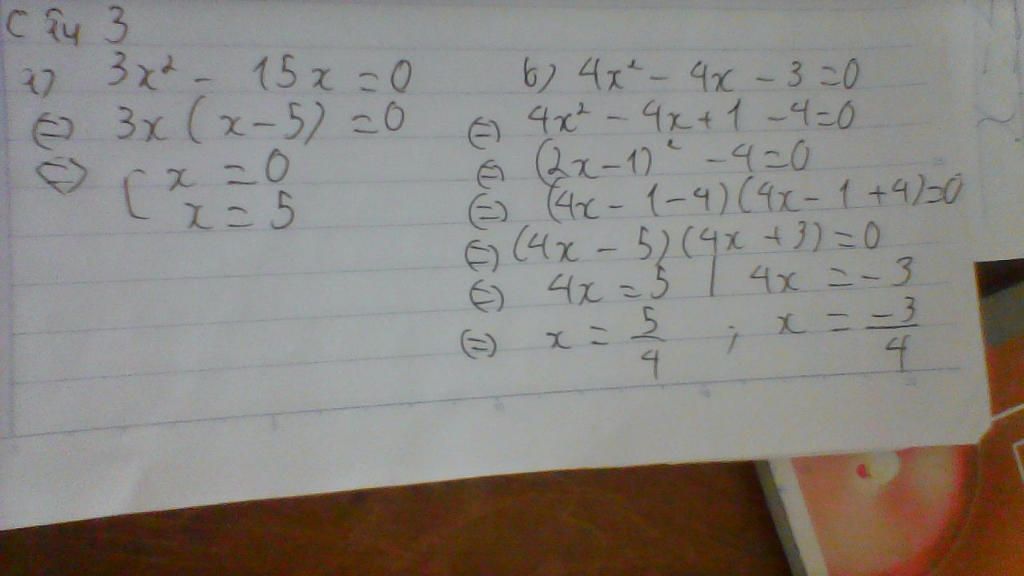 Câu 3
a) 3x² - 15x = 0
⇔ 3x (x - 5) = 0
⇔ [ x = 0
x = 5
b) 4x² - 4x - 3 = 0
⇔ 4x² - 4x + 1 - 4 = 0
⇔ (2x - 1)² - 4 = 0
⇔ (4x - 1 - 4) (4x - 1 + 4) = 0
⇔ (4x - 5) (4x + 3) = 0
⇔ 4x = 5 | 4x = -3
⇔ x = 5/4 ; x = -3/4